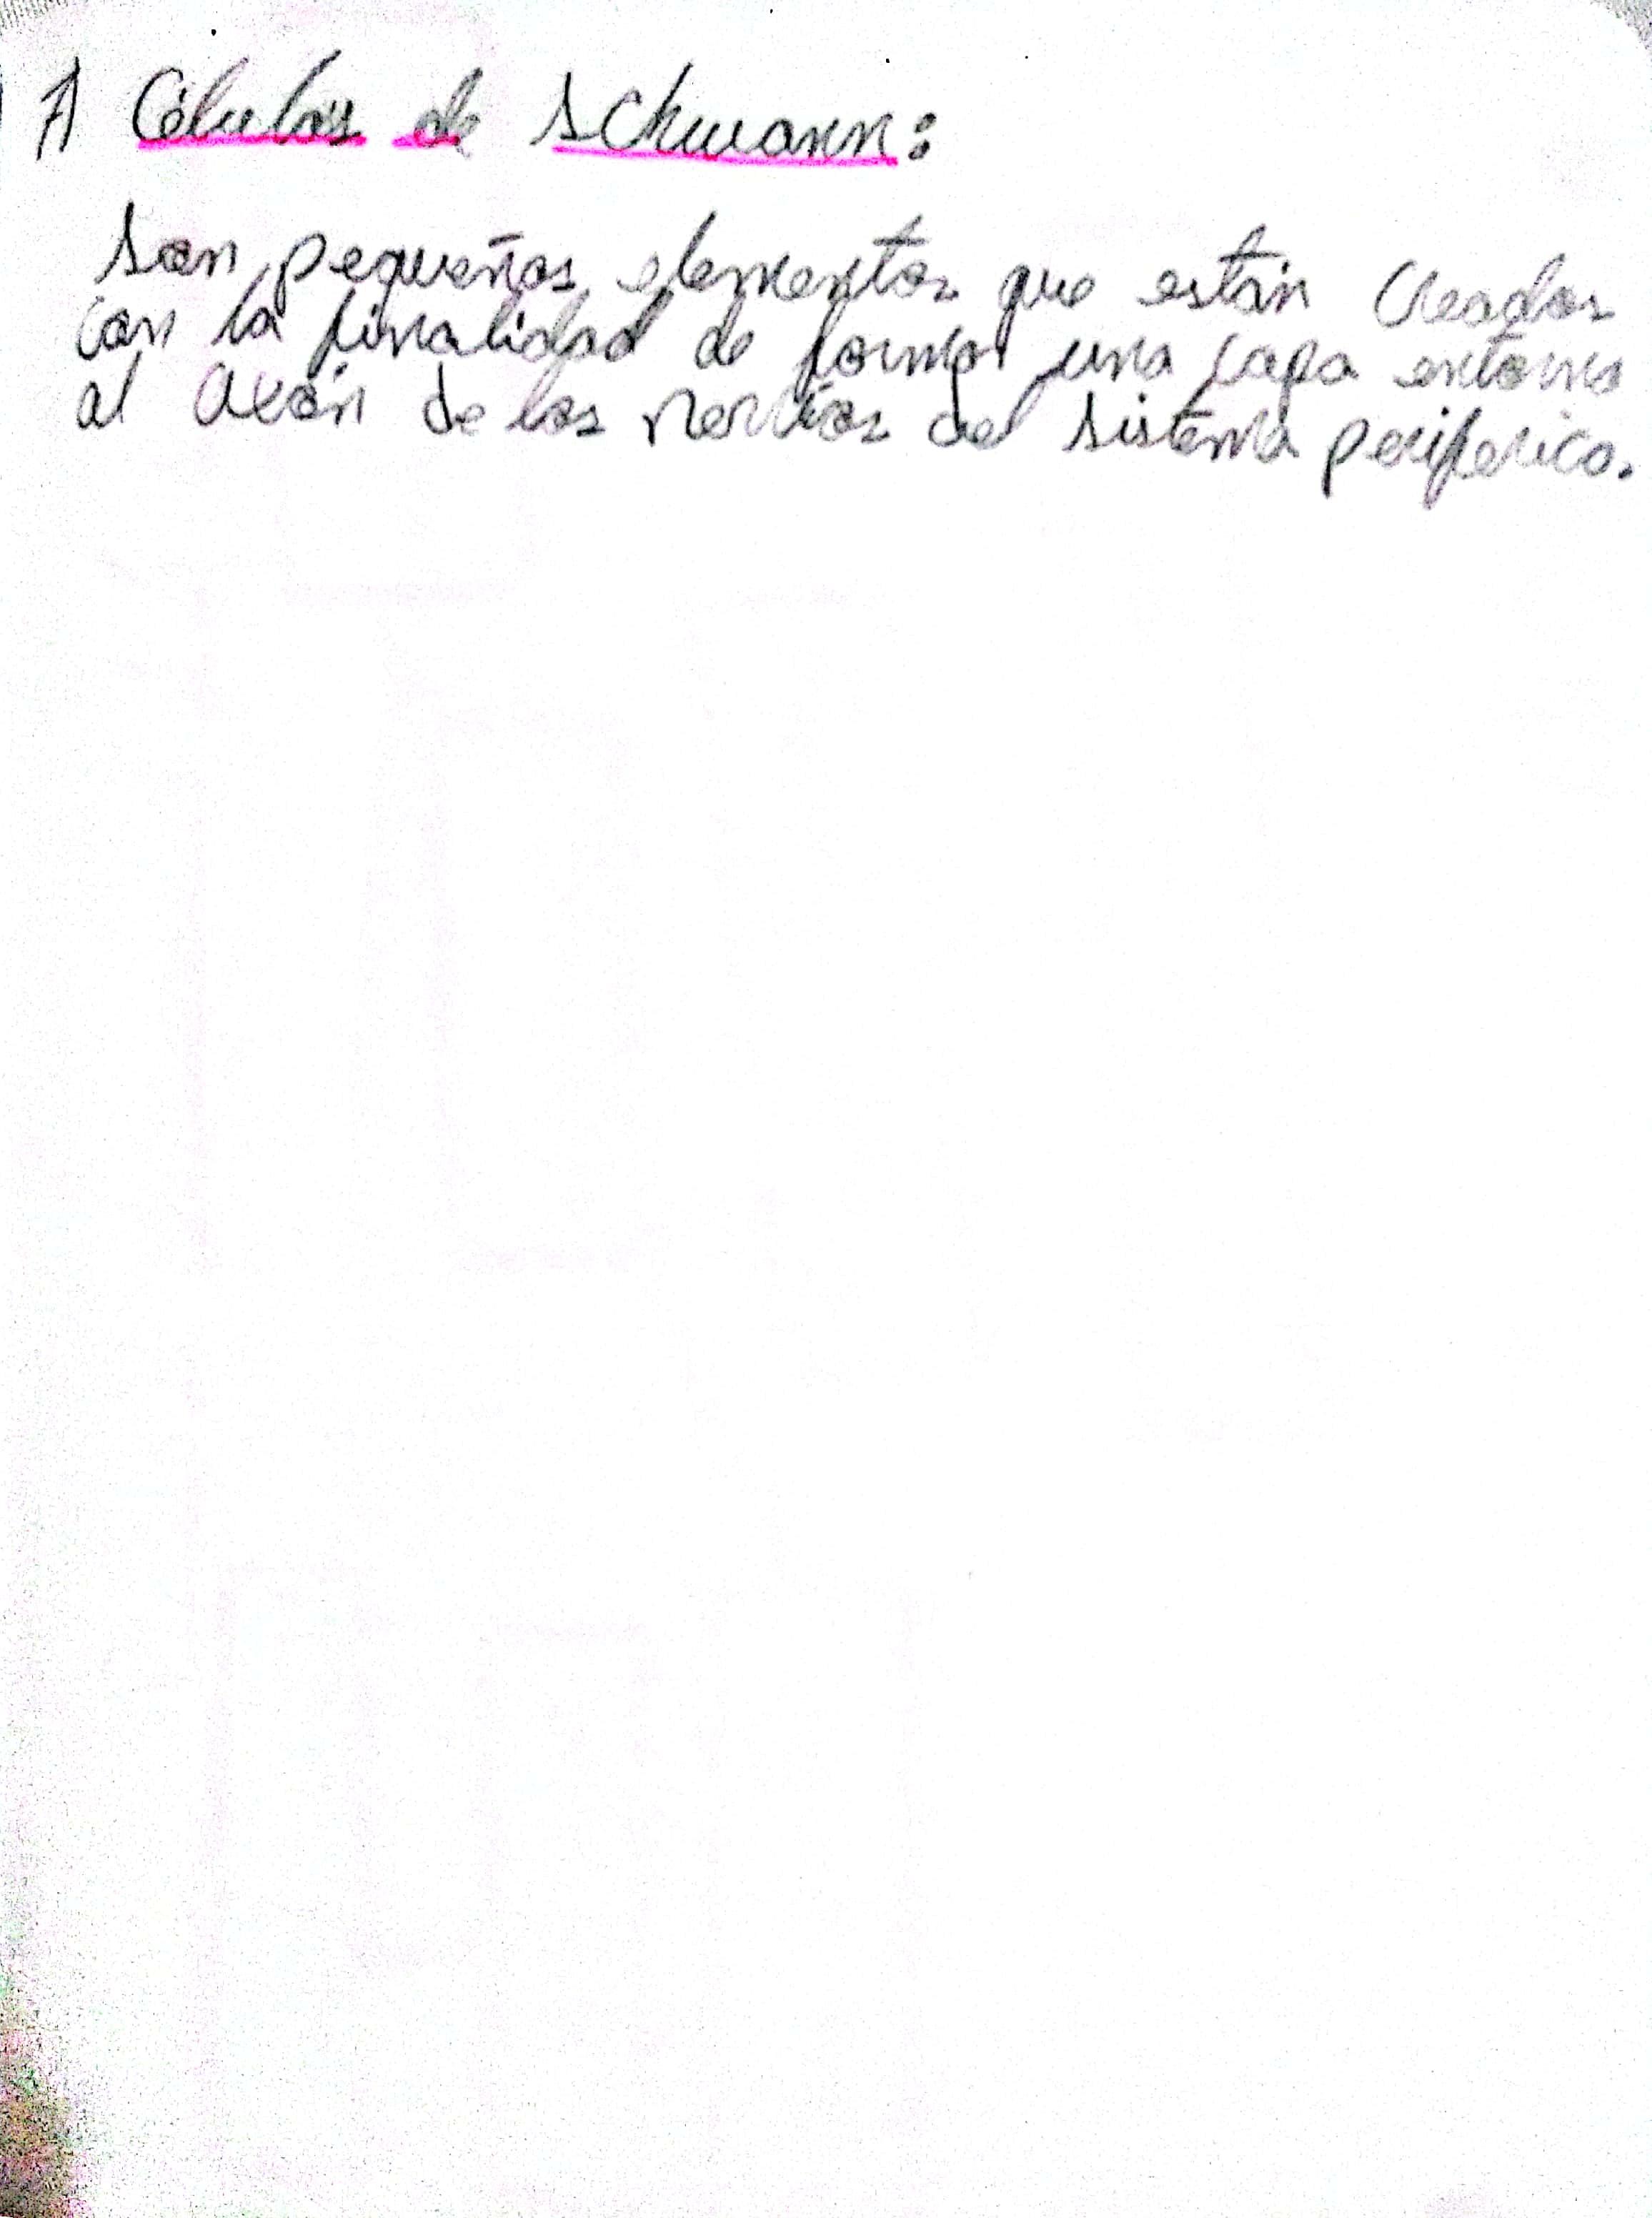 7) Células de Schwann:
Son pequeños elementos que están creados
con la finalidad de formar una capa entorno
al axón de los nervios del sistema periferico.